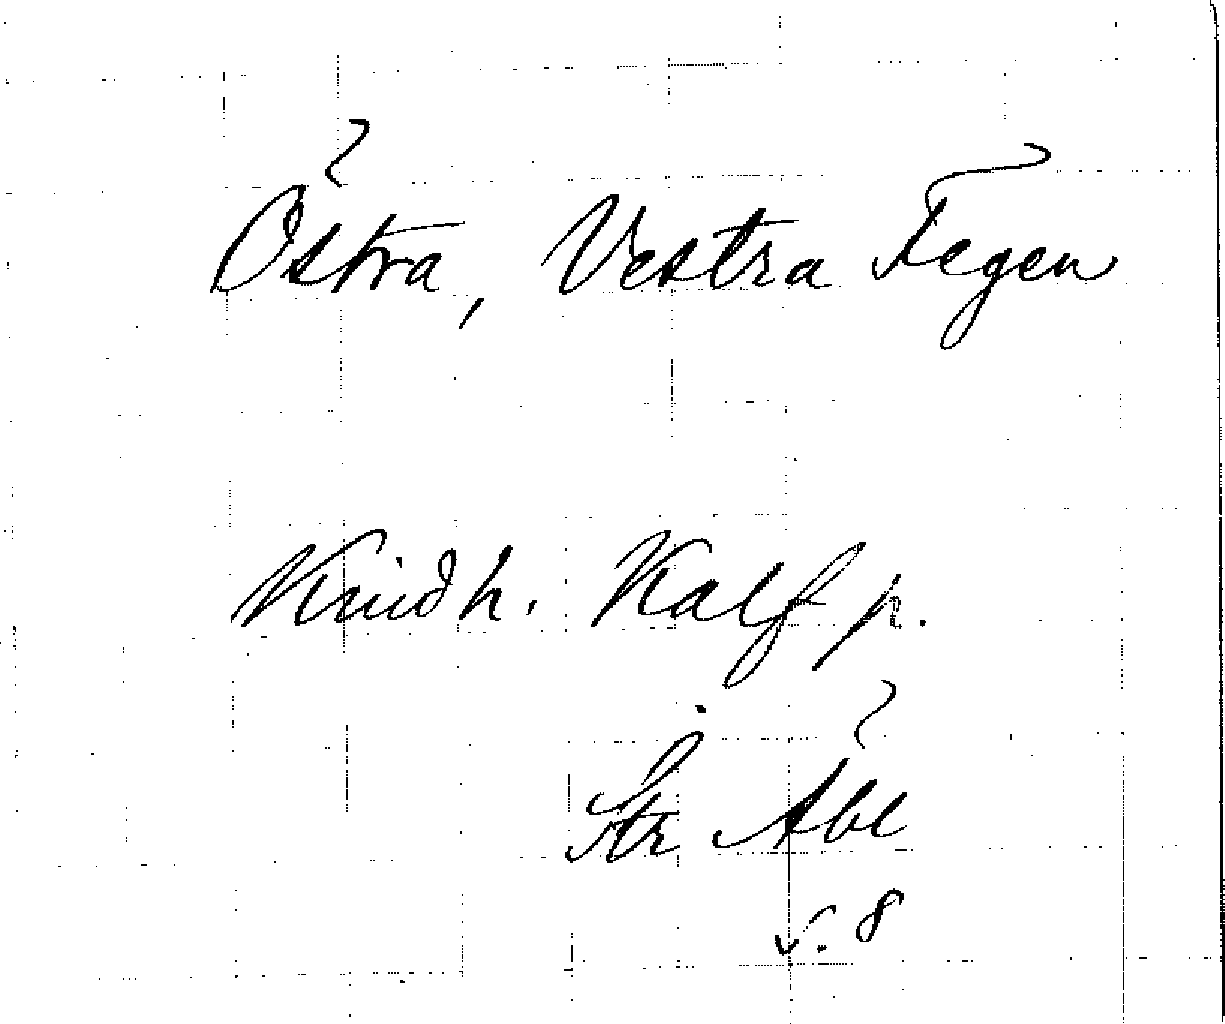 Östra, Vestra Fegen
Kindh. Kalf p.
Str Åbl
s. 8